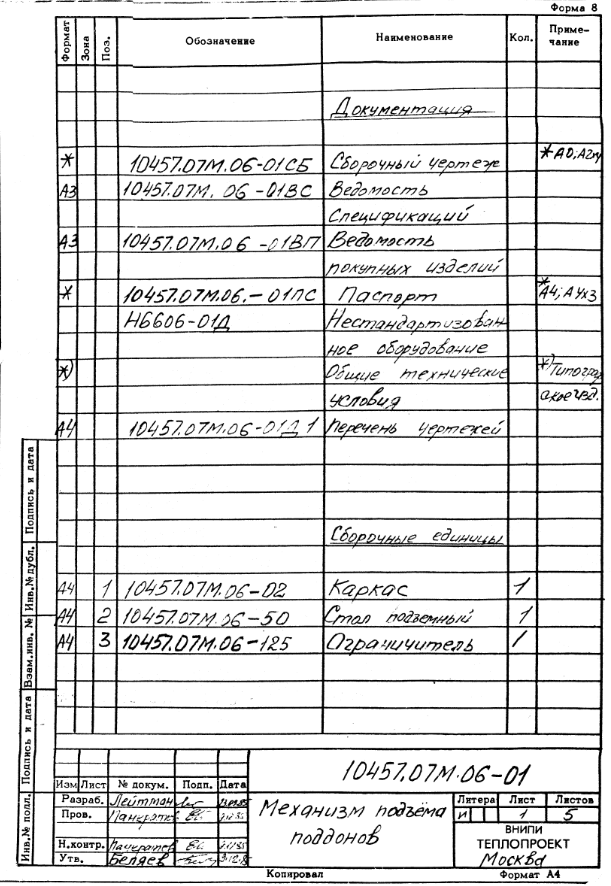 Форма 8
Формат Зона Поз. Обозначение Наименование Кол. Приме-
чание
Документация
* 10457.07М.06-01СБ Сборочный чертеж *А0;А2х4
А3 10457.07М.06-01ВС Ведомость
Спецификаций
А3 10457.07М.06-01ВП Ведомость
покупных изделий
* 10457.07М.06.-01ПС Паспорт *А4;А4х3
Н6606-01Д Нестандартизован-
ное оборудование
*) Общие технические *)Типограф
условия ское изд.
А4 10457.07М.06-01Д1 Перечень чертежей
Сборочные единицы
А4 1 10457.07М.06-02 Каркас 1
А4 2 10457.07М.06-50 Стол подъемный 1
А4 3 10457.07М.06-125 Ограничитель 1
Инв.№ подл. Подпись и дата Взам.инв. № Инв.№ дубл. Подпись и дата
10457.07М.06-01
Изм Лист № докум. Подп. Дата
Разраб. Лейтман
Пров. Панкратов
Н.контр. Панкратов
Утв. Беляев
Механизм подъёма
поддонов
Литера Лист Листов
И 1 5
ВНИПИ
ТЕПЛОПРОЕКТ
Москва
Копировал Формат А4